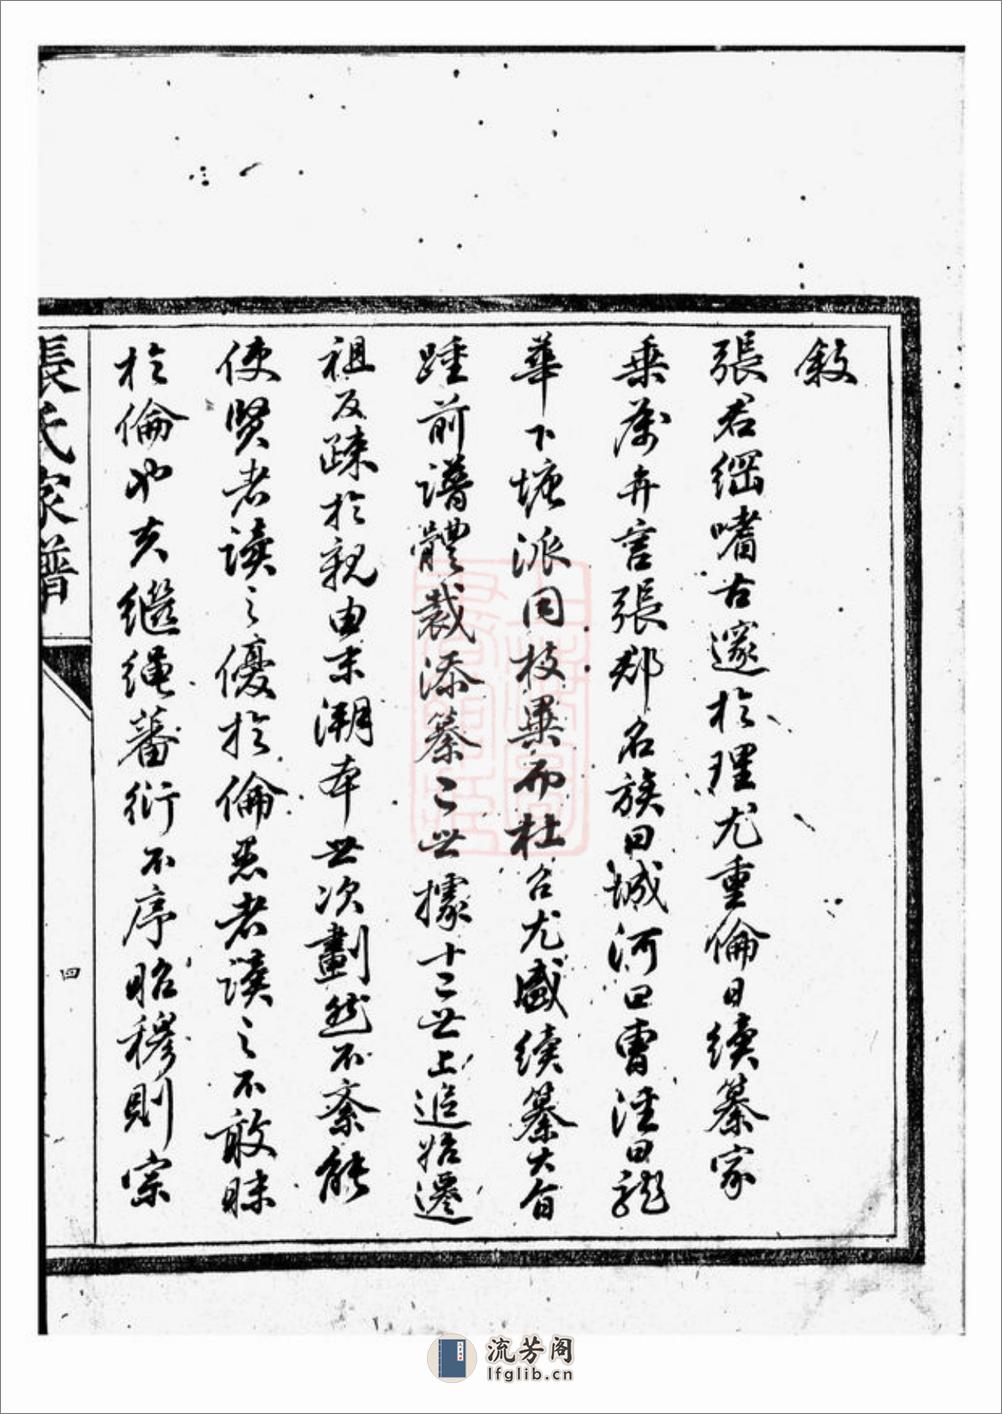 敘
張君綱嗜古邃於理尤重倫日續纂家
乘屬弁言張鄰名族曰城河曰曹涇曰龍
華下塘派同枝異而杜召尤盛續纂大旨
踵前譜體裁添纂二世據十二世上追始遷
祖反疎於親由末溯本世次劃然不紊能
使賢者读之優於倫愚者讀之不敢昧
於倫也夫繼繩蕃衍不序昭穆則宗
張氏家譜
四
流芳阁
lfglib.cn